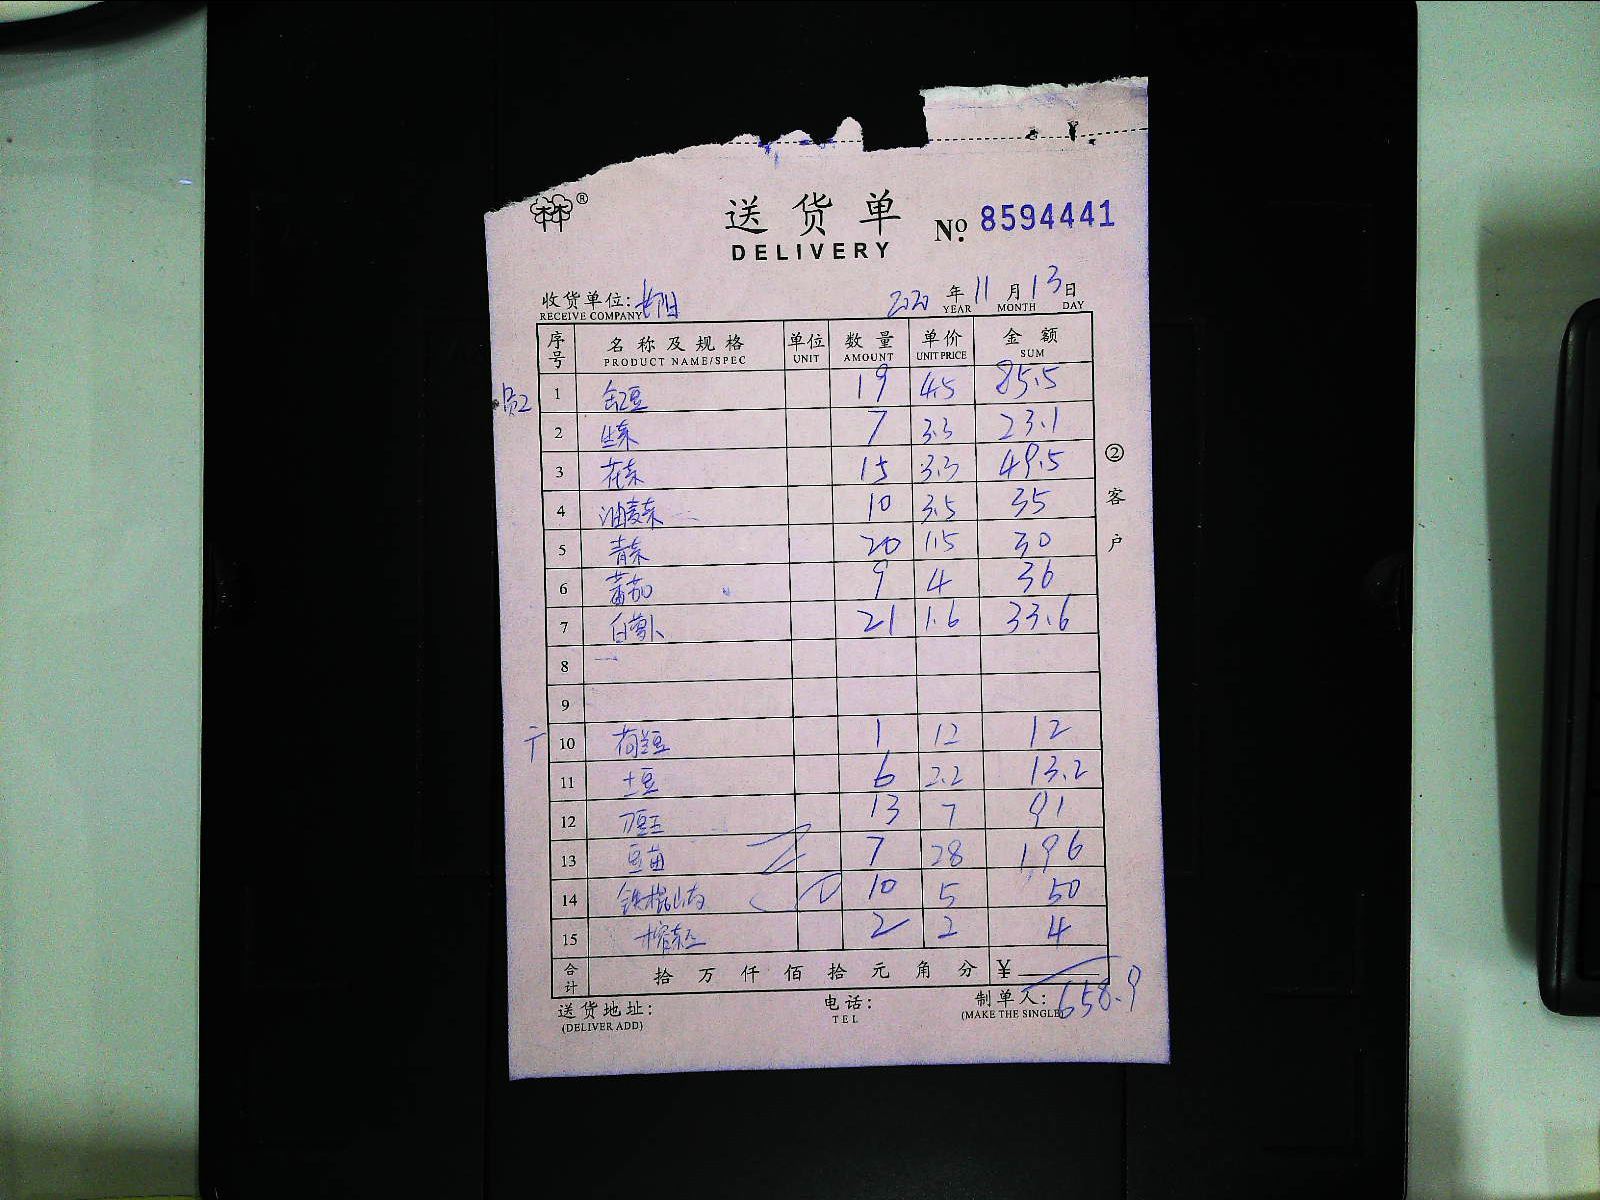 林®
送货单
DELIVERY
No. 8594441
收货单位: 长阳 2020 年 11 月 13 日
RECEIVE COMPANY YEAR MONTH DAY
序号 名称及规格 单位 数量 单价 金额
PRODUCT NAME/SPEC UNIT AMOUNT UNIT PRICE SUM
员工 1 缸豆 19 4.5 85.5
2 生菜 7 3.3 23.1
3 花菜 15 3.3 49.5
4 油麦菜 10 3.5 35
5 青菜 20 1.5 30
6 蕃茄 9 4 36
7 白萝卜 21 1.6 33.6
8
9
10 荷兰豆 1 12 12
11 土豆 6 2.2 13.2
12 刀豆 13 7 91
13 豆苗 7 28 196
14 铁棍山 10 5 50
15 榨菜 2 2 4
合计 拾万仟佰拾元角分 ¥ 658.9
送货地址: 电话: 制单人:
(DELIVER ADD) TEL (MAKE THE SINGLE
②客户